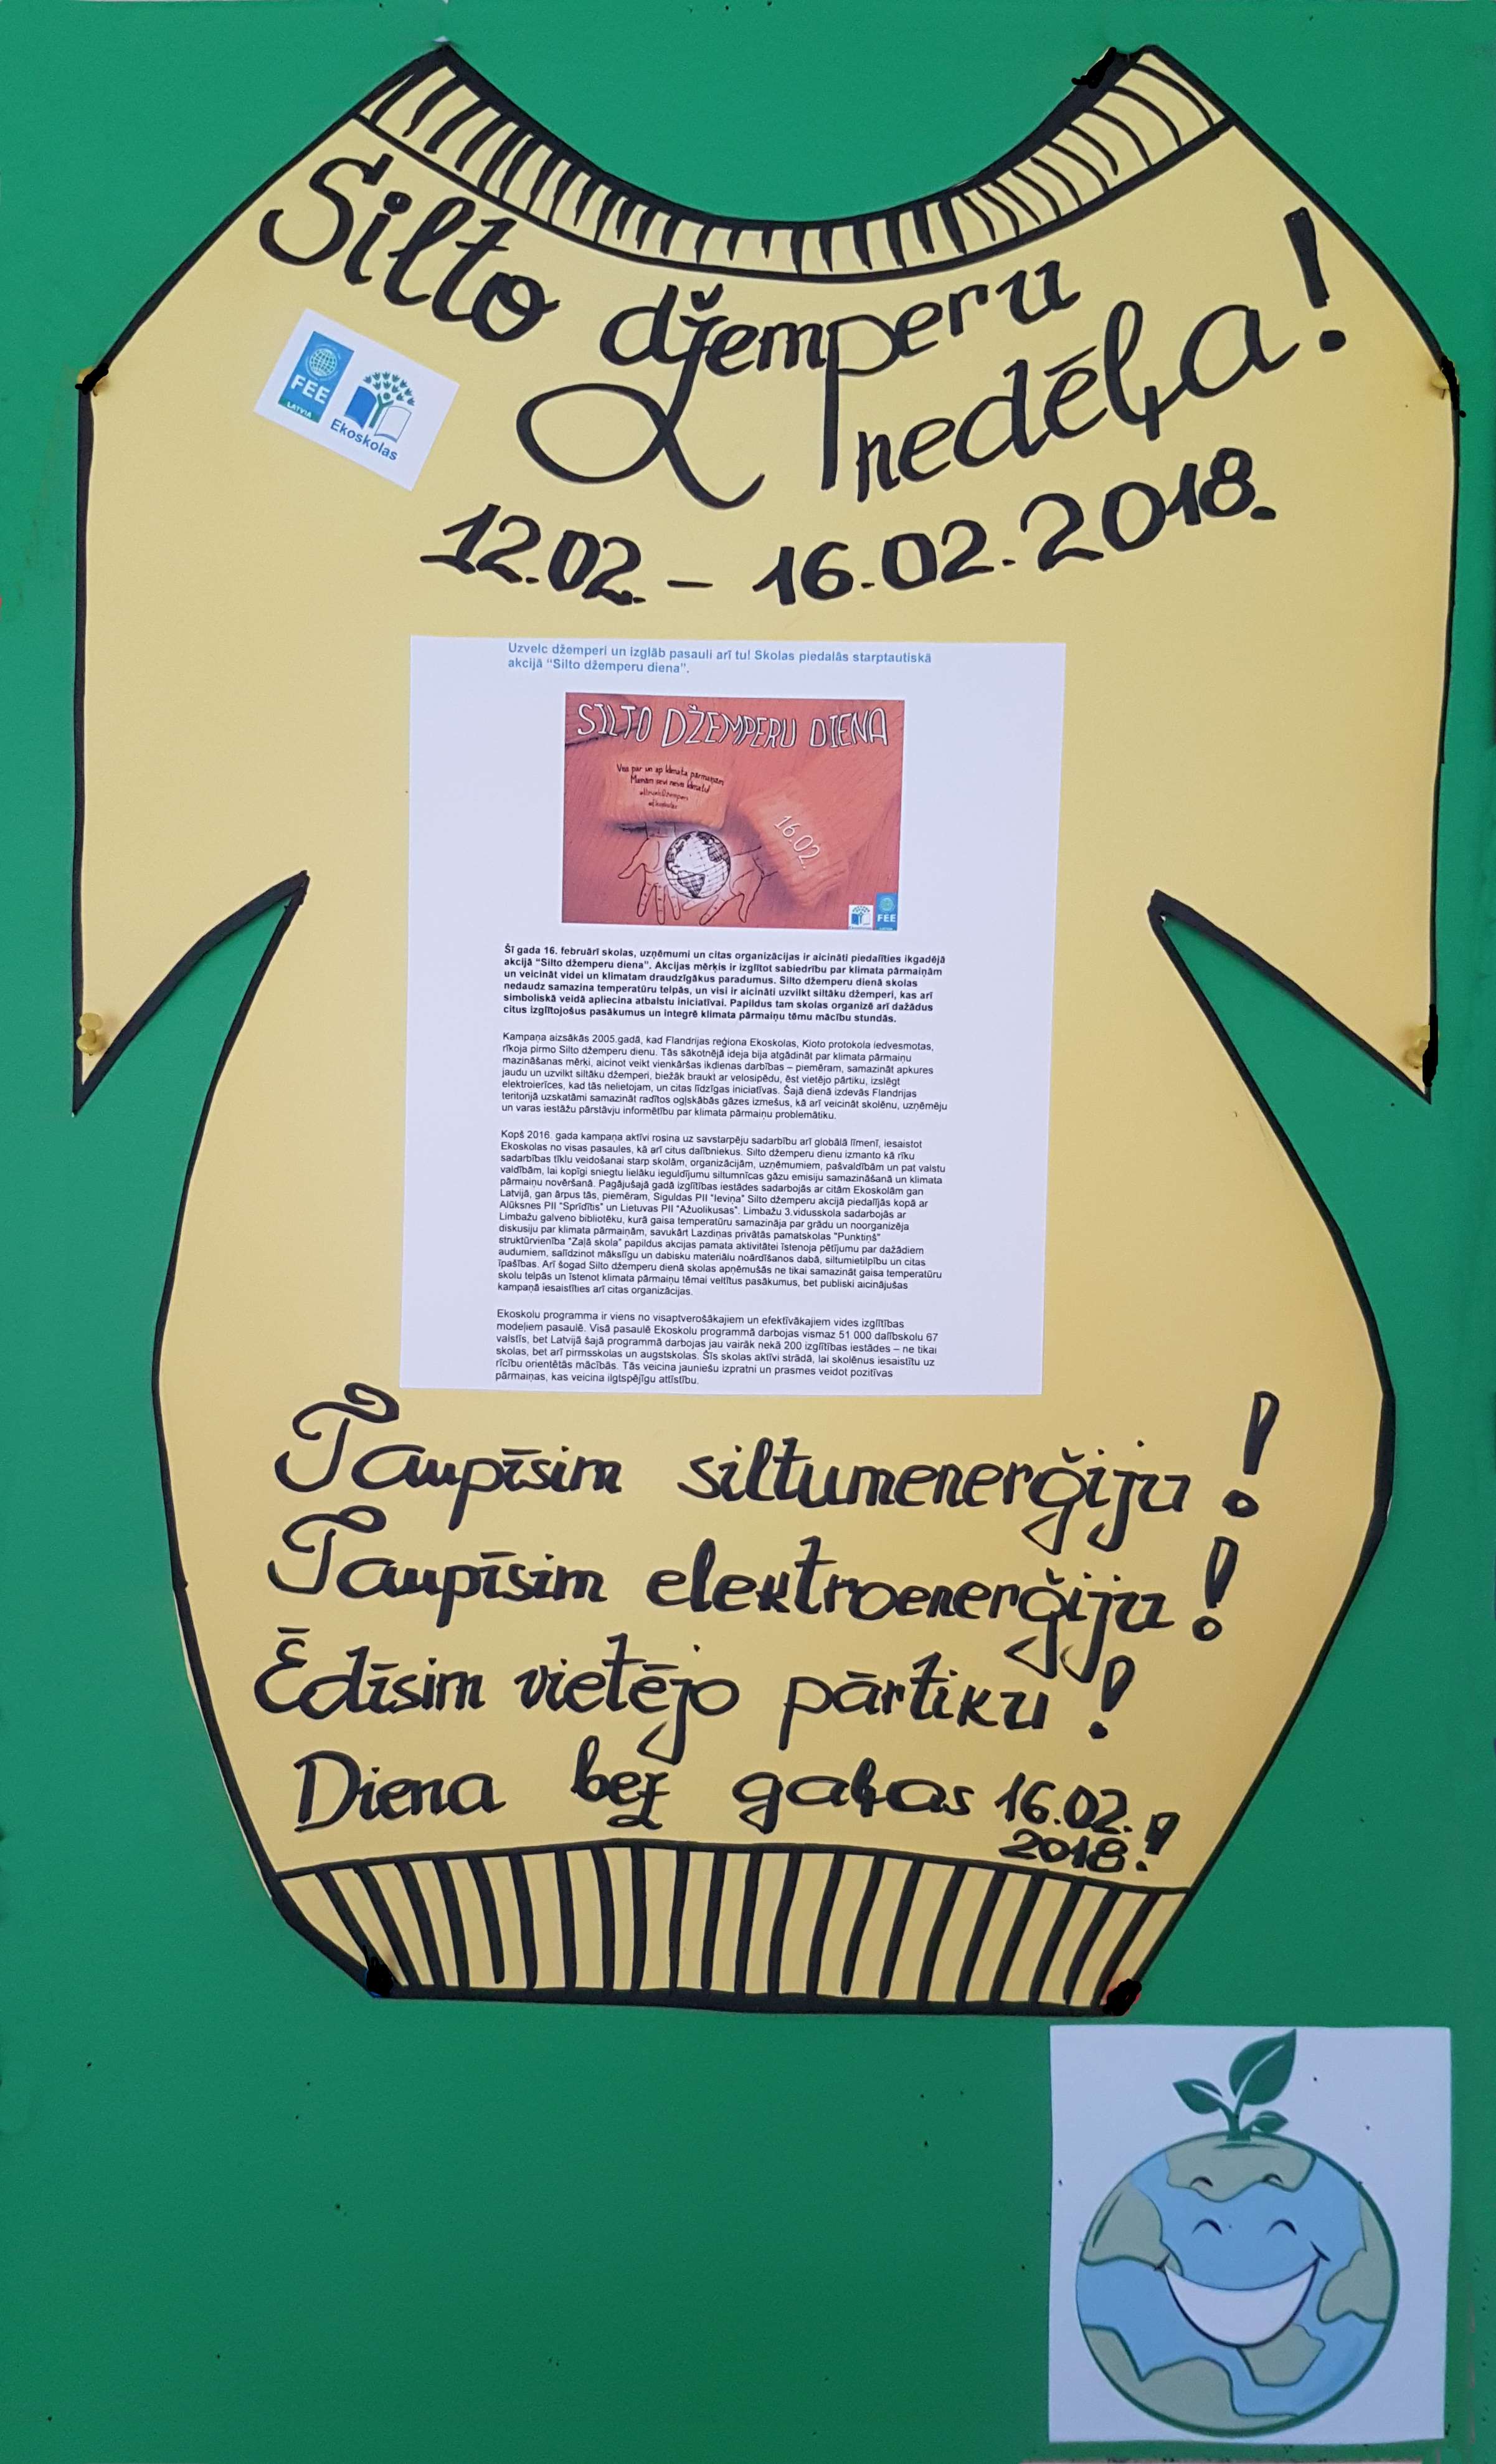 Silto džemperu
nedēļa!
FEE
LATVIA
Ekoskolas
12.02. - 16.02.2018.
Uzvelc džemperi un izglāb pasauli arī tu! Skolas piedalās starptautiskā
akcijā "Silto džemperu diena".
SILTO DŽEMPERU DIENA
Viss par un ap klimata pārmaiņām
16.02.
FEE
Šī gada 16. februārī skolas, uzņēmumi un citas organizācijas ir aicināti piedalīties ikgadējā
akcijā "Silto džemperu diena". Akcijas mērķis ir izglītot sabiedrību par klimata pārmaiņām
un veicināt videi un klimatam draudzīgākus paradumus. Silto džemperu dienā skolas
nedaudz samazina temperatūru telpās, un visi ir aicināti uzvilkt siltāku džemperi, kas arī
simboliskā veidā apliecina atbalstu iniciatīvai. Papildus tam skolas organizē arī dažādus
citus izglītojošus pasākumus un integrē klimata pārmaiņu tēmu mācību stundās.
Kampaņa aizsākās 2005.gadā, kad Flandrijas reģiona Ekoskolas, Kioto protokola iedvesmotas,
rīkoja pirmo Silto džemperu dienu. Tās sākotnējā ideja bija atgādināt par klimata pārmaiņu
mazināšanas mērķi, aicinot veikt vienkāršas ikdienas darbības – piemēram, samazināt apkures
jaudu un uzvilkt siltāku džemperi, biežāk braukt ar velosipēdu, ēst vietējo pārtiku, izslēgt
elektroierīces, kad tās nelietojam, un citas līdzīgas iniciatīvas. Šajā dienā izdevās Flandrijas
teritorijā uzskatāmi samazināt radītos ogļskābās gāzes izmešus, kā arī veicināt skolēnu, uzņēmēju
un varas iestāžu pārstāvju informētību par klimata pārmaiņu problemātiku.
Kopš 2016. gada kampaņa aktīvi rosina uz savstarpēju sadarbību arī globālā līmenī, iesaistot
Ekoskolas no visas pasaules, kā arī citus dalībniekus. Silto džemperu dienu izmanto kā rīku
sadarbības tīklu veidošanai starp skolām, organizācijām, uzņēmumiem, pašvaldībām un pat valstu
valdībām, lai kopīgi sniegtu lielāku ieguldījumu siltumnīcas gāzu emisiju samazināšanā un klimata
pārmaiņu novēršanā. Pagājušajā gadā izglītības iestādes sadarbojās ar citām Ekoskolām gan
Latvijā, gan ārpus tās, piemēram, Siguldas PII "Ieviņa" Silto džemperu akcijā piedalījās kopā ar
Alūksnes PII "Sprīdītis" un Lietuvas PII "Ažuolikusas". Limbažu 3.vidusskola sadarbojās ar
Limbažu galveno bibliotēku, kurā gaisa temperatūru samazināja par grādu un noorganizēja
diskusiju par klimata pārmaiņām, savukārt Lazdiņas privātās pamatskolas "Punktiņš"
struktūrvienība "Zaļā skola" papildus akcijas pamata aktivitātei īstenoja pētījumu par dažādiem
audumiem, salīdzinot mākslīgu un dabisku materiālu noārdīšanos dabā, siltumietilpību un citas
īpašības. Arī šogad Silto džemperu dienā skolas apņēmušās ne tikai samazināt gaisa temperatūru
skolu telpās un īstenot klimata pārmaiņu tēmai veltītus pasākumus, bet publiski aicinājušas
kampaņā iesaistīties arī citas organizācijas.
Ekoskolu programma ir viens no visaptverošākajiem un efektīvākajiem vides izglītības
modeļiem pasaulē. Visā pasaulē Ekoskolu programmā darbojas vismaz 51 000 dalībskolu 67
valstīs, bet Latvijā šajā programmā darbojas jau vairāk nekā 200 izglītības iestādes – ne tikai
skolas, bet arī pirmsskolas un augstskolas. Šīs skolas aktīvi strādā, lai skolēnus iesaistītu uz
rīcību orientētās mācībās. Tās veicina jauniešu izpratni un prasmes veidot pozitīvas
pārmaiņas, kas veicina ilgtspējīgu attīstību.
Taupīsim siltumenerģiju!
Taupīsim elektroenerģiju!
Ēdīsim vietējo pārtiku!
Diena bez gaļas 16.02.
2018!